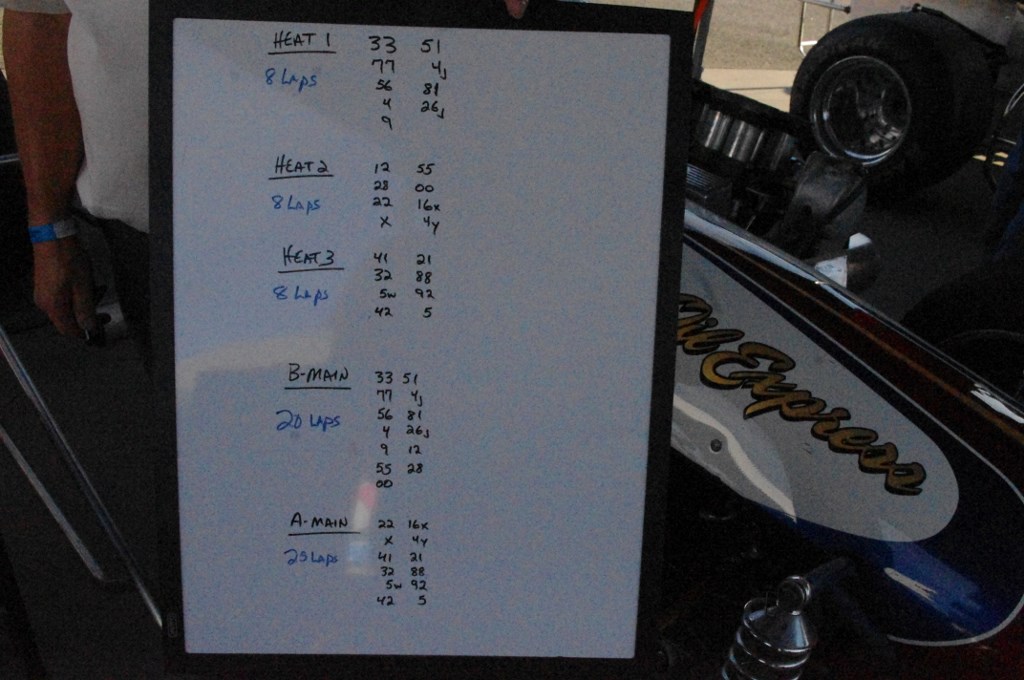 HEAT 1 33 51
77 4J
8 LAPS
56 81
4 26J
9
HEAT 2 12 55
28 00
8 LAPS 22 16x
X 4Y
HEAT 3 41 21
32 88
8 LAPS 5w 92
42 5
B-MAIN 33 51
77 4J
20 LAPS 56 81
4 26J
9 12
55 28
00
A-MAIN 22 16x
X 4Y
25 LAPS 41 21
32 88
5w 92
42 5
Oil Express